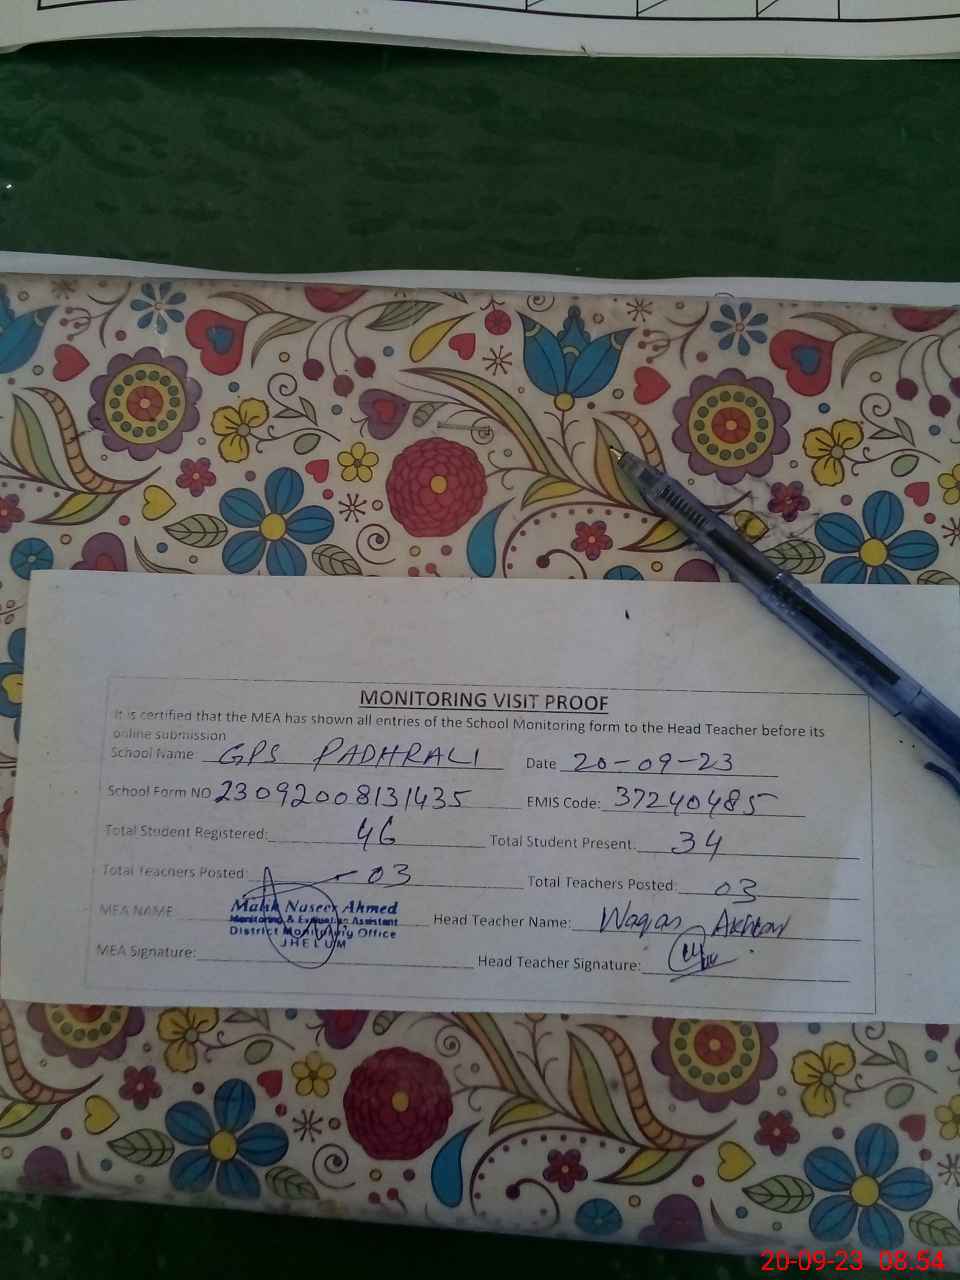 MONITORING VISIT PROOF
It is certified that the MEA has shown all entries of the School Monitoring form to the Head Teacher before its
online submission
School Name: GPS PADHRALI Date 20-09-23
School Form NO 23092008131435 EMIS Code: 37240485
Total Student Registered: 46 Total Student Present: 34
Total Teachers Posted: 03 Total Teachers Posted: 03
MEA NAME Malik Naseer Ahmed Head Teacher Name: Waqas Akhtar
Monitoring & Evaluation Assistant
District Monitoring Office
JHELUM
MEA Signature: Head Teacher Signature:
20-09-23 08.54